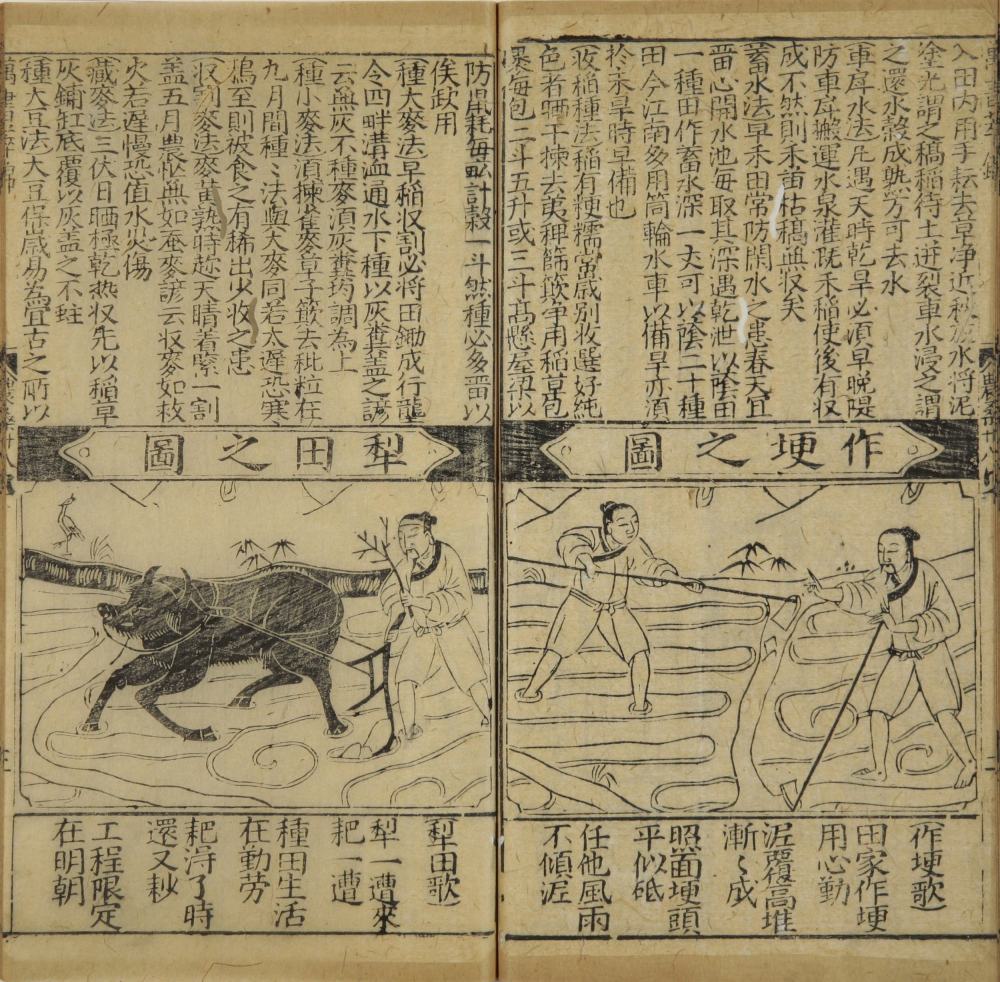 入田内用手耘去草净近秋放水將泥
塗光謂之稿稻待土迸裂車水浸之謂
之還水穀成熟方可去水
車戽水法凡遇天時乾旱必須早晚隄
防車戽搬運水泉灌旣禾稻使後有収
成不然則禾苗枯槁無収矣
蓄水法早禾田常防閙水之患春天宜
畱心開水池每取其深遇乾泄以蔭田
一種田作蓄水深一丈可以蔭二十種
田今江南多用筒輪水車以備旱亦須
扵未旱時早備也
收稻種法稻有粳糯當歲別收選好純
色者晒干揀去荑稗篩簸净用稻草包
裹每包二斗五升或三斗髙懸屋梁以
防鼠耗每畆計榖一斗然種必多畱以
俟缺用
種大麥法早稻収割必將田鋤成行壟
令四畔溝洫通水下種以灰糞蓋之諺
云無灰不種麥須灰糞均調為上
種小麥法須揀雀麥草子簸去秕粒在
九月間種〻法與大麥同若太遲恐寒
鴉至則被食之有稀出少收之患
収割麥法麥黄熟時趂天晴着緊一割
盖五月農忙無如蚕麥諺云収麥如救
火若遲慢恐值水災傷
藏麥法三伏日晒極乾热収先以稻草
灰鋪缸底覆以灰盖之不蛀
種大豆法大豆保歲易為宜古之所以
作埂之圖
犁田之圖
作埂歌
田家作埂
用心勤
泥覆高堆
漸〻成
照面埂頭
平似砥
任他風雨
不傾泥
犁田歌
犁一遭來
耙一遭
種田生活
在勤劳
耙淂了時
還又耖
工程限定
在明朝